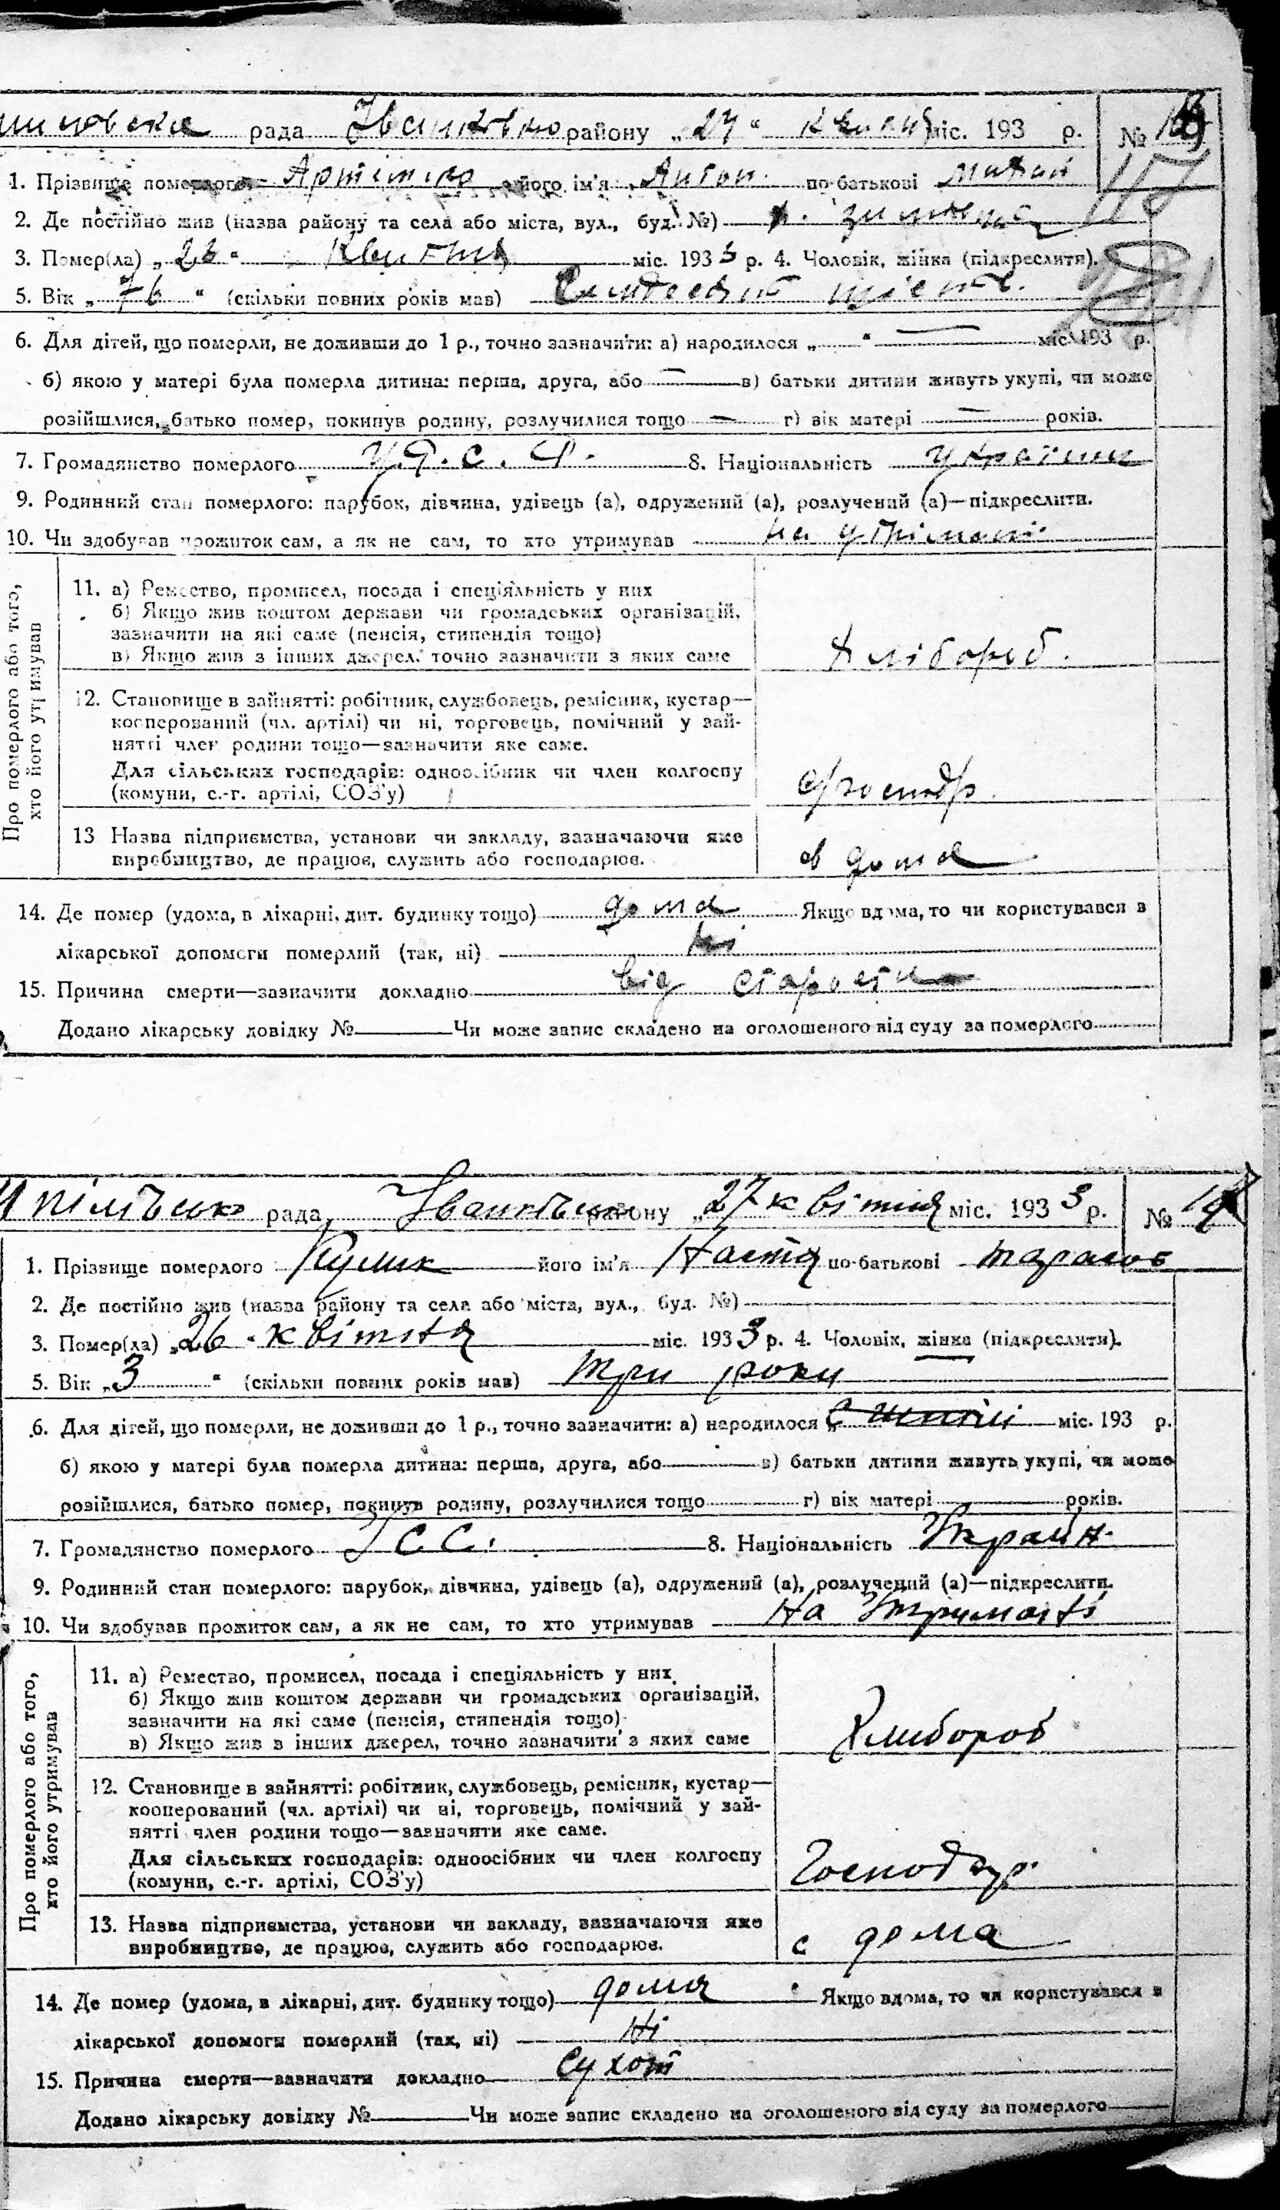 рада Іванково району „27“ квітня міс. 193 р. №
1. Прізвище померлого Артеменко його ім'я Антон по-батькові
2. Де постійно жив (назва району та села або міста, вул., буд. №)
3. Помер(ла) „23“ Квітня міс. 1933 р. 4. Чоловік, жінка (підкреслити).
5. Вік „76“ (скільки повних років мав)
6. Для дітей, що померли, не доживши до 1 р., точно зазначити: а) народилося „ “ міс. 193 р.
б) якою у матері була померла дитина: перша, друга, або — в) батьки дитини живуть укупі, чи може
розійшлися, батько помер, покинув родину, розлучилися тощо — г) вік матері — років.
7. Громадянство померлого У.С.С.Р. 8. Національність українец
9. Родинний стан померлого: парубок, дівчина, удівець (а), одружений (а), розлучений (а)—підкреслити.
10. Чи здобував прожиток сам, а як не сам, то хто утримував на утрімані
Про померлого або того, хто його утримував
11. а) Ремество, промисел, посада і спеціяльність у них
б) Якщо жив коштом держави чи громадських організацій,
зазначити на які саме (пенсія, стипендія тощо)
в) Якщо жив з інших джерел, точно зазначити з яких саме Хлібороб.
12. Становище в зайнятті: робітник, службовець, ремісник, кустар—
кооперований (чл. артілі) чи ні, торговець, помічний у зай-
нятті член родини тощо—зазначити яке саме.
Для сільських господарів: одноосібник чи член колгоспу
(комуни, с.-г. артілі, СОЗ'у)
13 Назва підприємства, установи чи закладу, зазначаючи яке
виробництво, де працює, служить або господарює. в дома
14. Де помер (удома, в лікарні, дит. будинку тощо) дома Якщо вдома, то чи користувався в
лікарської допомоги померлий (так, ні) ні
15. Причина смерти—зазначити докладно від старости
Додано лікарську довідку № Чи може запис складено на оголошеного від суду за померлого
рада Іванківськ району „27 квітня міс. 1933 р. № 19
1. Прізвище померлого Кулик його ім'я Настя по-батькові Тарасов
2. Де постійно жив (назва району та села або міста, вул., буд. №)
3. Помер(ла) „26“ квітня міс. 1933 р. 4. Чоловік, жінка (підкреслити).
5. Вік „3“ (скільки повних років мав) три роки
6. Для дітей, що померли, не доживши до 1 р., точно зазначити: а) народилося міс. 193 р.
б) якою у матері була померла дитина: перша, друга, або — в) батьки дитини живуть укупі, чи може
розійшлися, батько помер, покинув родину, розлучилися тощо г) вік матері років.
7. Громадянство померлого УСС. 8. Національність Україн.
9. Родинний стан померлого: парубок, дівчина, удівець (а), одружений (а), розлучений (а)—підкреслити.
10. Чи здобував прожиток сам, а як не сам, то хто утримував на утримані
Про померлого або того, хто його утримував
11. а) Ремество, промисел, посада і спеціяльність у них
б) Якщо жив коштом держави чи громадських організацій,
зазначити на які саме (пенсія, стипендія тощо)
в) Якщо жив з інших джерел, точно зазначити з яких саме Хлибороб
12. Становище в зайнятті: робітник, службовець, ремісник, кустар—
кооперований (чл. артілі) чи ні, торговець, помічний у зай-
нятті член родини тощо—зазначити яке саме.
Для сільських господарів: одноосібник чи член колгоспу
(комуни, с.-г. артілі, СОЗ'у) Господар.
13. Назва підприємства, установи чи закладу, зазначаючи яке
виробництво, де працює, служить або господарює. с дома
14. Де помер (удома, в лікарні, дит. будинку тощо) дома Якщо вдома, то чи користувався в
лікарської допомоги померлий (так, ні) Ні
15. Причина смерти—зазначити докладно Сухот
Додано лікарську довідку № Чи може запис складено на оголошеного від суду за померлого